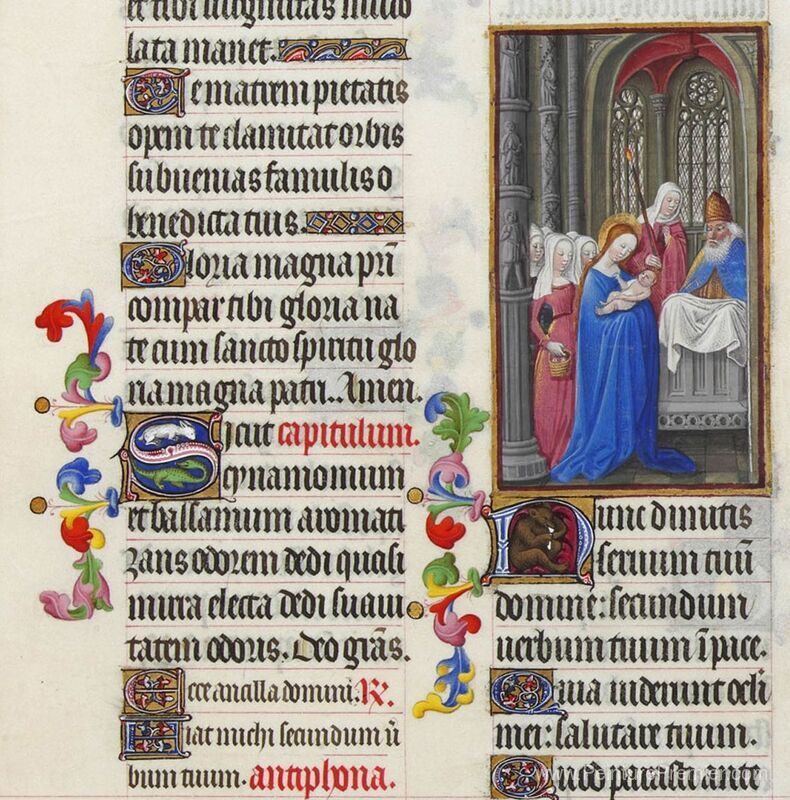 et tibi
lata manet.
Te matrem pietatis
opem te clamitat orbis
subuenias famulis o
benedicta tuis.
Gloria magna pr̄i
compar tibi gloria na
te cum sancto spiritu glo
ria magna patri. Amen.
Sicut capitulum.
cynamomum
et balsamum aromati
zans odorem dedi quasi
mirra electa dedi suaui
tatem odoris. Deo grās.
Ecce ancilla domini. R.
Fiat michi secundum ū
bum tuum. antiphona.
Nunc dimitis
seruum tuū
domine: secundum
uerbum tuum ī pace.
Quia uiderunt oculi
mei: salutare tuum.
Quod parasti ante